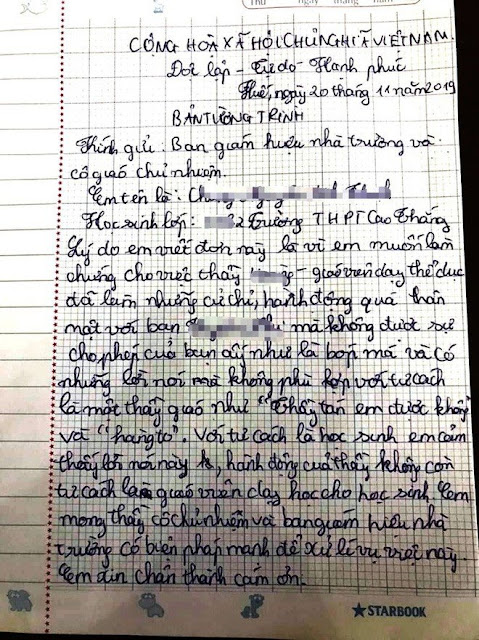 Thu ngày tháng năm
CỘNG HOÀ XÃ HỘI CHỦ NGHĨA VIỆT NAM.
Độc lập - Tự do - Hạnh phúc
Huế, ngày 20 tháng 11 năm 2019
BẢN TƯỜNG TRÌNH
Kính gửi: Ban giám hiệu nhà trường và
cô giáo chủ nhiệm.
Em tên là:
Học sinh lớp: Trường THPT Cao Thắng
Lý do em viết đơn này là vì em muốn làm
chứng cho việt thầy - giáo viên dạy thể dục
đã làm những cử chỉ, hành động quá thân
mật với bạn mà không được sự
cho phép của bạn ấy như là bóp má và có
những lời nói mà không phù hợp với tư cách
là một thầy giáo như "Thầy tán em được không"
và "hàng to". Với tư cách là học sinh em cảm
thấy lời nói này, hành động của thầy không còn
tư cách làm giáo viên dạy học cho học sinh. Em
mong thầy cô chủ nhiệm và ban giám hiệu nhà
trường có biện pháp mạnh để xử lí vụ việc này.
Em xin chân thành cảm ơn.
STARBOOK